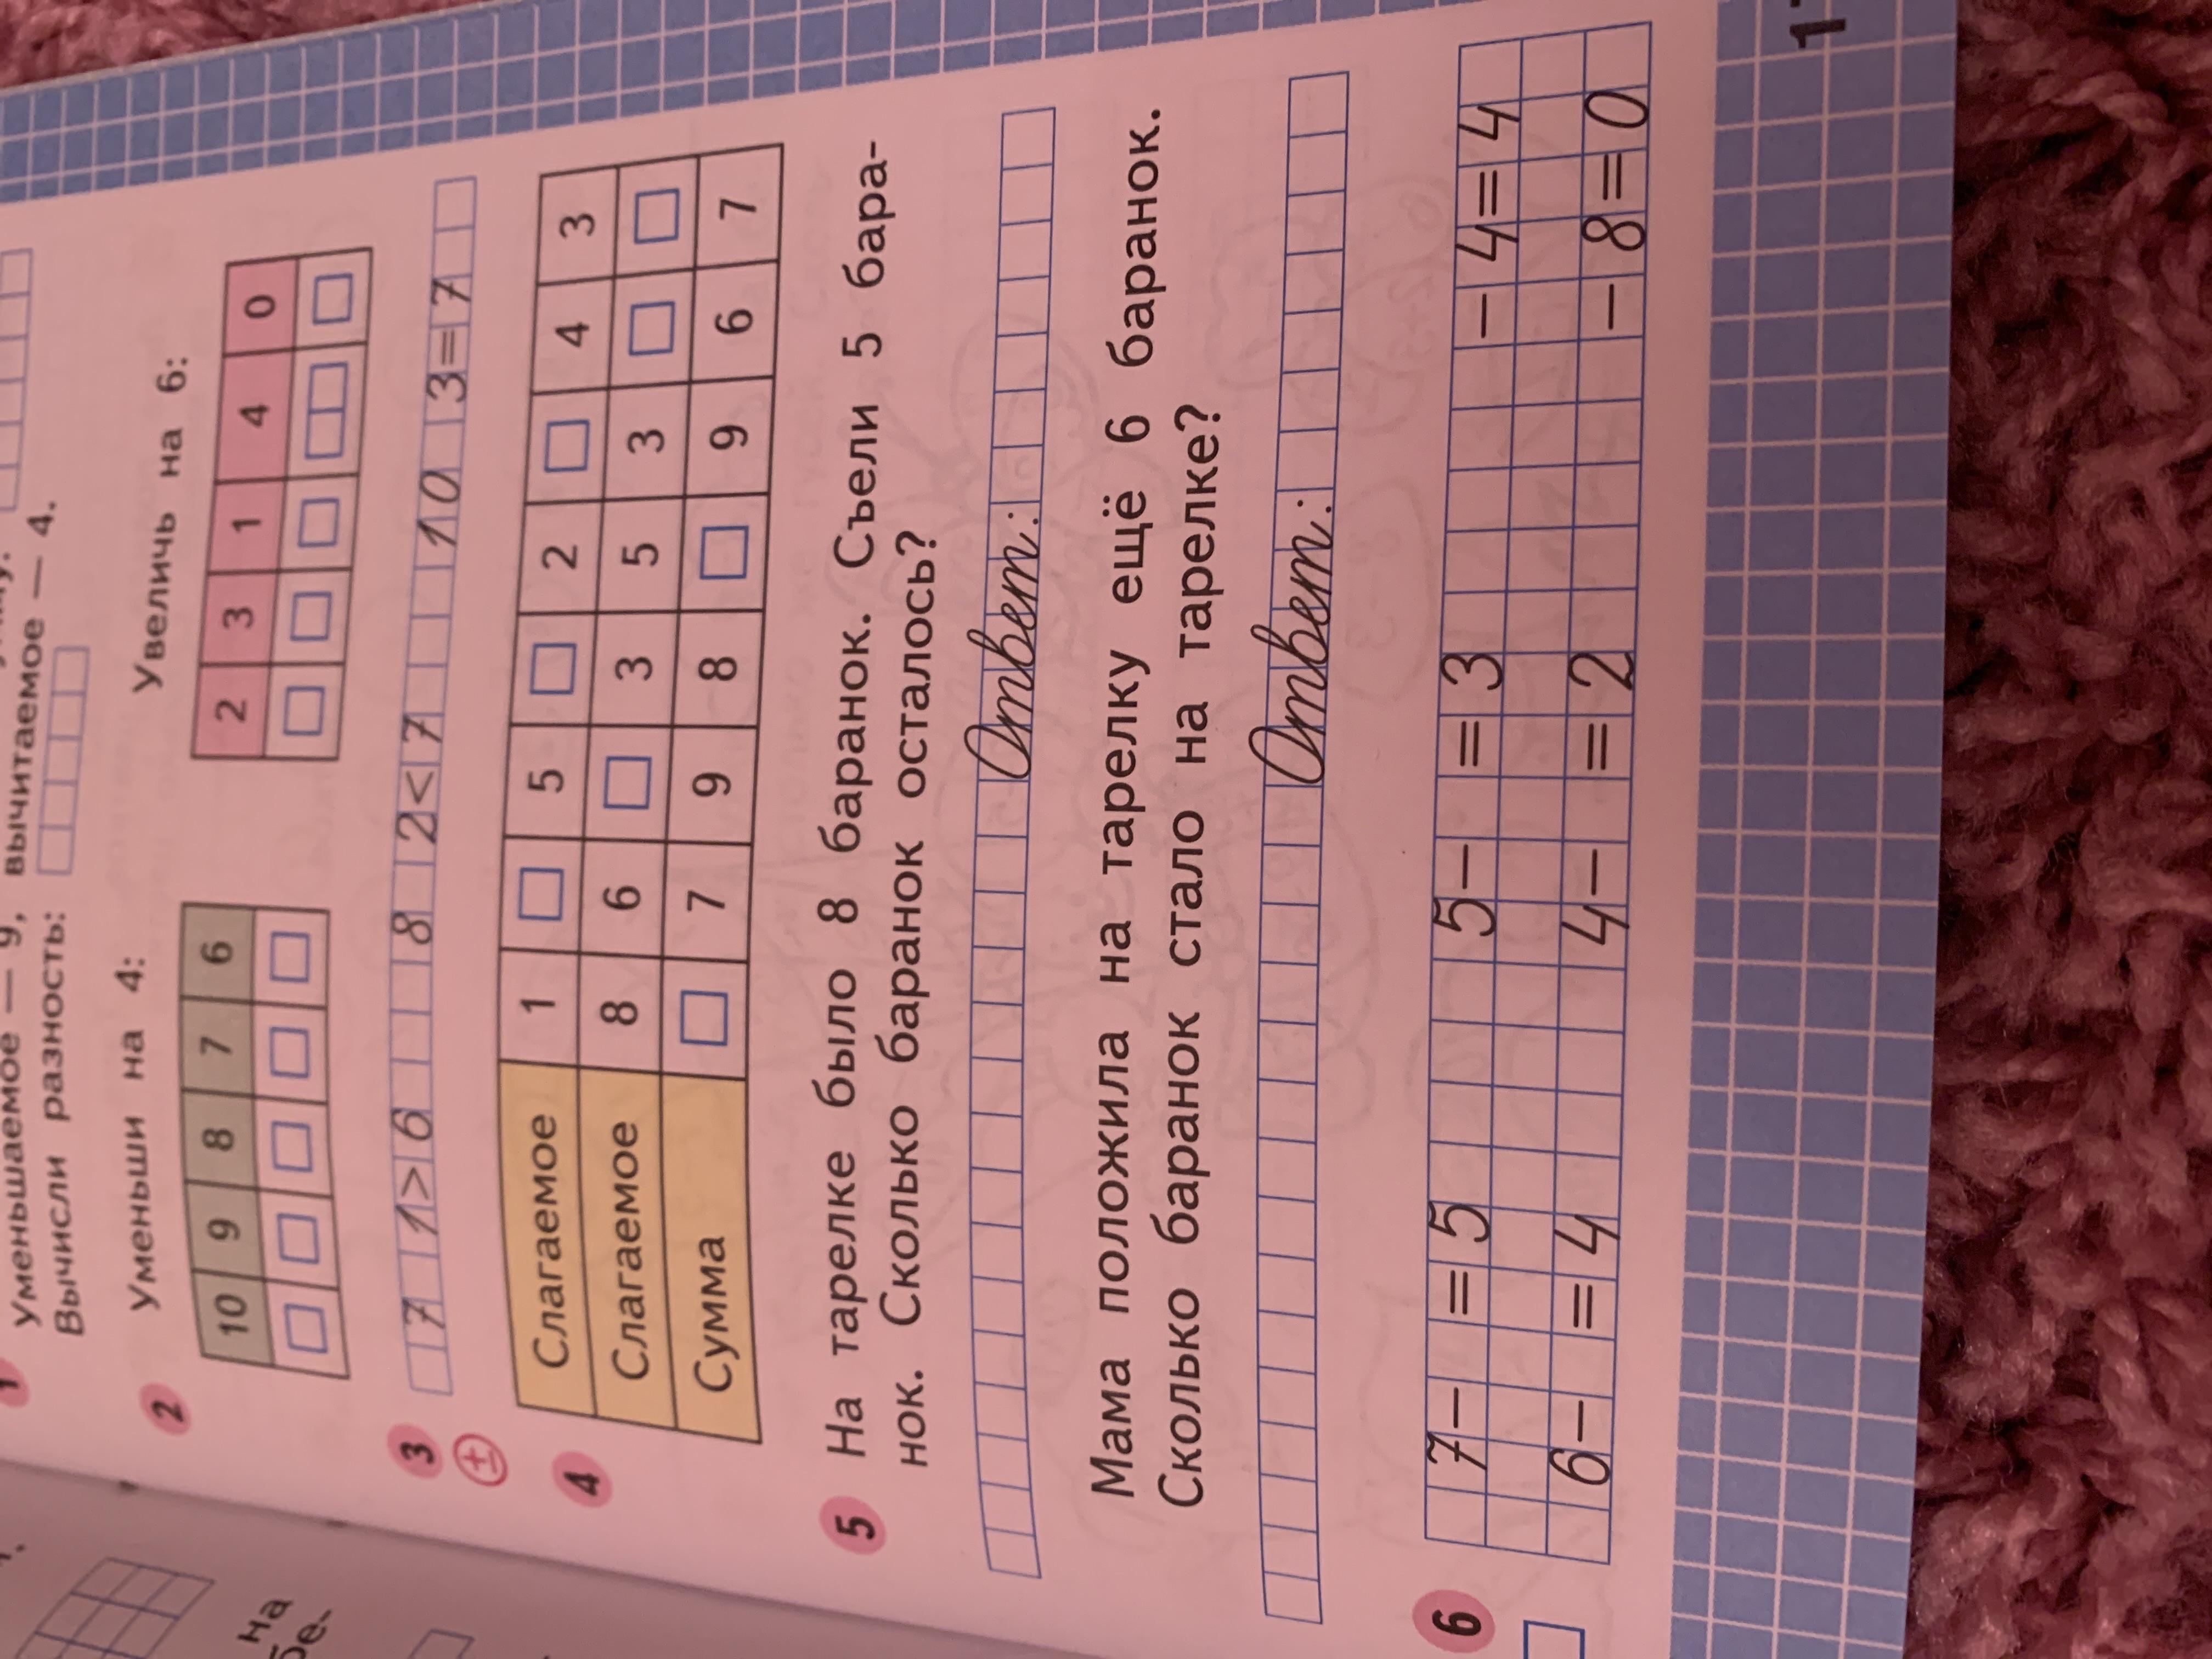 1 Уменьшаемое — 9, вычитаемое — 4.
Вычисли разность:
2 Уменьши на 4: Увеличь на 6:
10 9 8 7 6 2 3 1 4 0
3 7 1>6 8 2<7 10 3=7
±
4 Слагаемое 1 5 2 4 3
Слагаемое 8 6 3 5 3
Сумма 7 9 8 9 6 7
5 На тарелке было 8 баранок. Съели 5 бара-
нок. Сколько баранок осталось?
Ответ:
Мама положила на тарелку ещё 6 баранок.
Сколько баранок стало на тарелке?
Ответ:
6 7– =5 5– =3 –4=4
6– =4 4– =2 –8=0
на